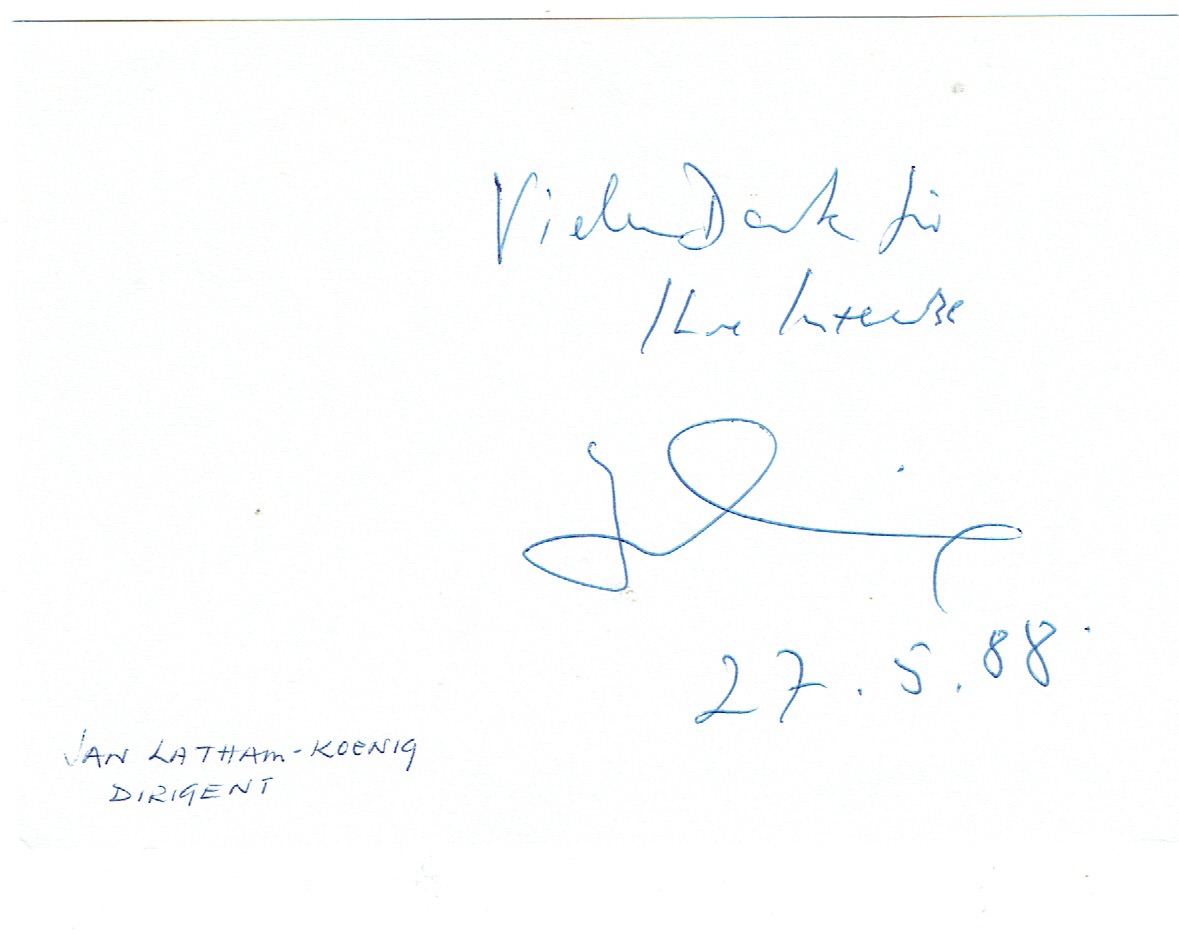 Vielen Dank für
Ihre Interesse
27.5.88.
JAN LATHAM-KOENIG
DIRIGENT